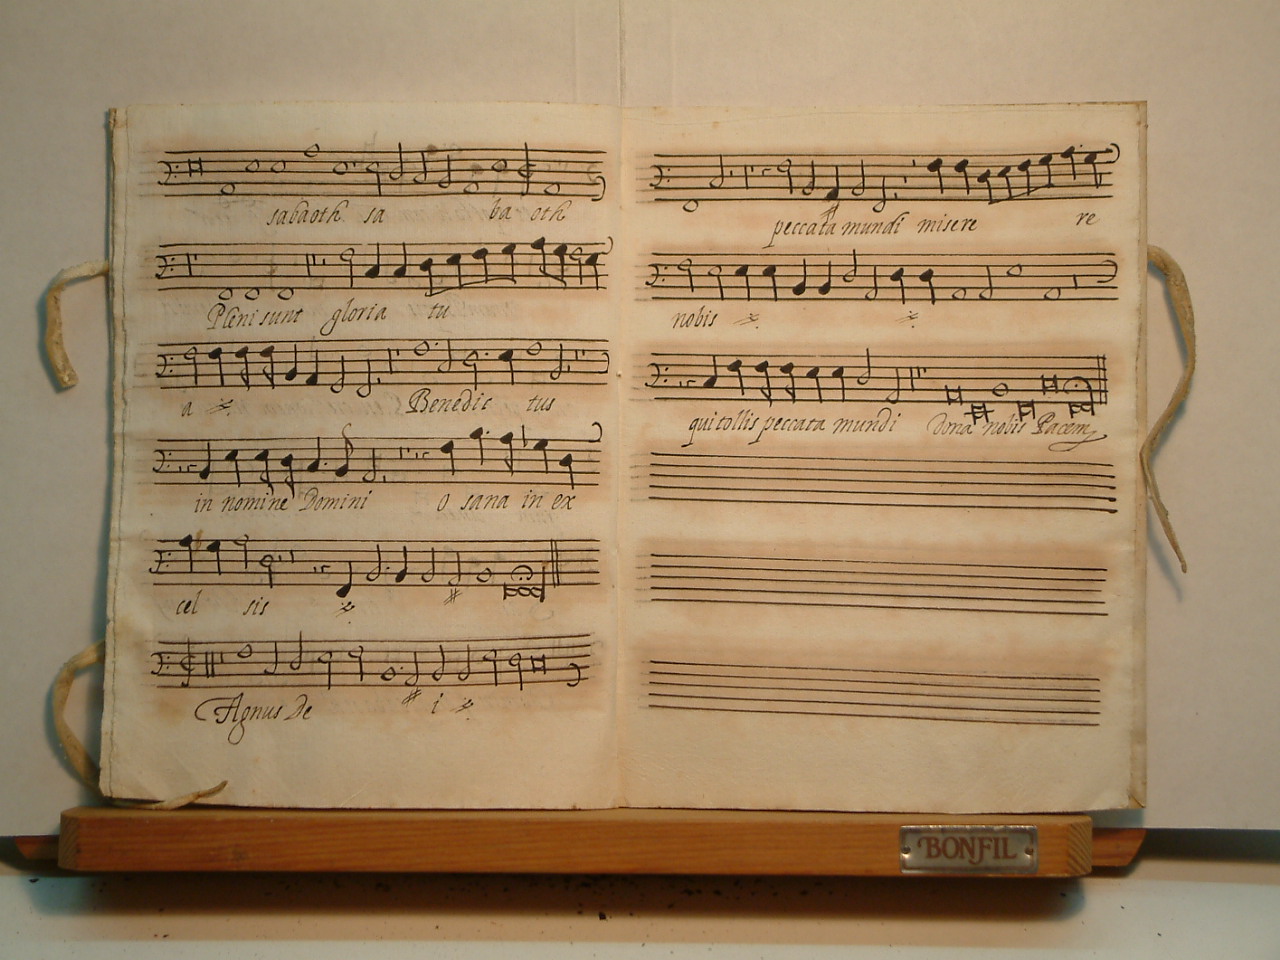 sabaoth sa ba oth
Pleni sunt gloria tu
a Benedic tus
in nomine Domini O sana in ex
cel sis
Agnus De i
peccata mundi misere re
nobis
qui tollis peccata mundi dona nobis Pacem
BONFIL